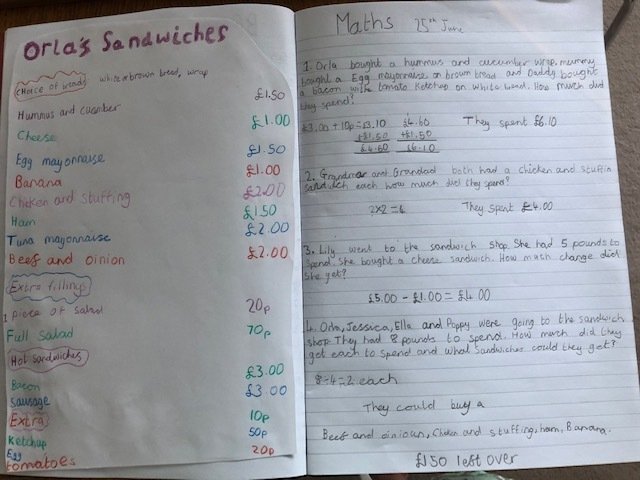 Orla's Sandwiches
Choice of bread white or brown bred, wrap
Hummus and cucumber £1.50
Cheese £1.00
Egg mayonnaise £1.50
Banana £1.00
Chicken and stuffing £2.00
Ham £1.50
Tuna mayonnaise £2.00
Beef and oinion £2.00
Extra fillings
1 piece of salad 20p
Full salad 70p
Hot sandwiches
Bacon £3.00
Sausage £3.00
Extra
Ketchup 10p
Egg 50p
tomatoes 20p
Maths 25th June
1. Orla bought a hummus and cucumber wrap, mummy
bought a Egg mayonnaise on brown bread and Daddy bought
a bacon with tomato ketchup on white bread. How much did
they spend?
£3.00 + 10p = £3.10 £4.60 They spent £6.10
+£1.50 +£1.50
£4.60 £6.10
2. Grandma and Grandad both had a chicken and stuffin
sandwich each how much did they spend?
2×2=4 They spent £4.00
3. Lily went to the sandwich shop. She had 5 pounds to
spend. She bought a cheese sandwich. How much change did
she get?
£5.00 - £1.00 = £4.00
4. Orla, Jessica, Ella and Poppy were going to the sandwich
shop. They had 8 pounds to spend. How much did they
get each to spend and what sandwiches could they get?
8÷4=2 each
They could buy a
Beef and oinioun, Chicken and stuffing, ham, Banana.
£1.50 left over